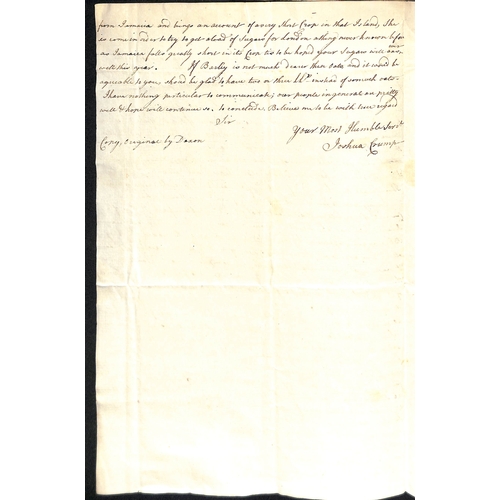 from Jamaica and brings an account of a very Short Crop in that Island, She
is come in order to try to get a load of Sugars for London a thing never known before
as Jamaica falls greatly short in its Crop tis to be hoped your Sugars will
sell this year. If Barley is not much dearer then oats and it wou'd be
agreeable to you, shou'd be glad to have two or three hhds instead of so much oats.
I have nothing particular to communicate; our people in general are pretty
well & hope will continue so. to conclude. Believe me to be with true regard
Sir
Your Most Humble Serv.t
Copy, Original by Daxon
Joshua Crump